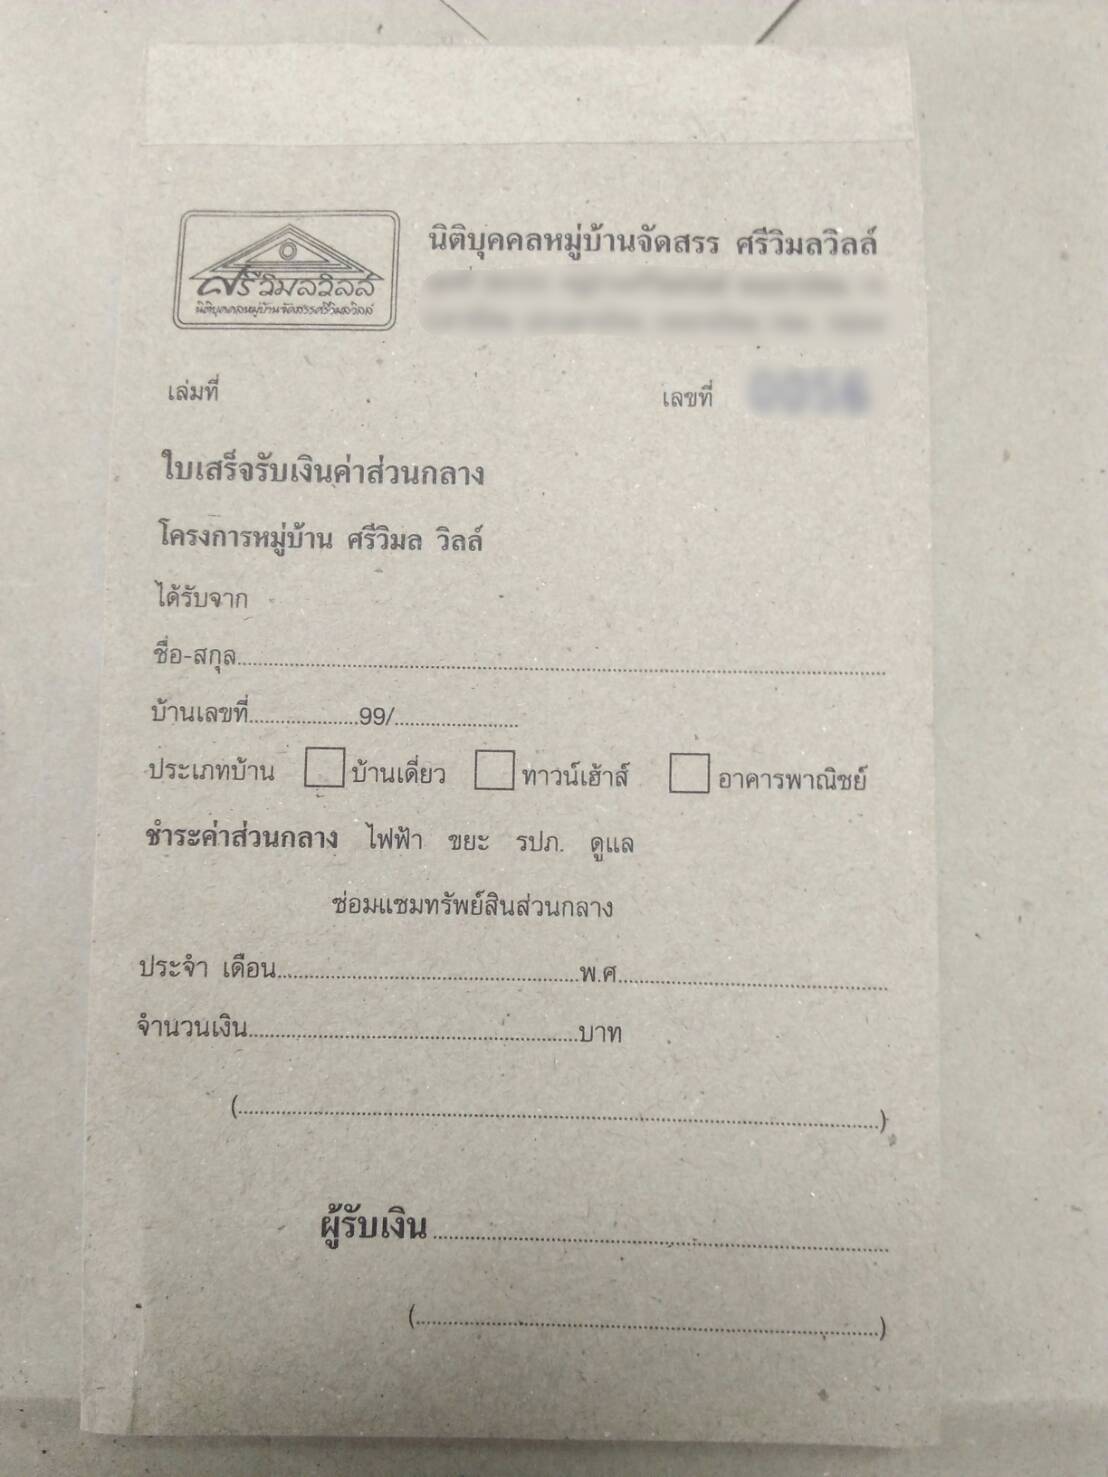 ศรีวิมลวิลล์
นิติบุคคลหมู่บ้านจัดสรรศรีวิมลวิลล์
นิติบุคคลหมู่บ้านจัดสรร ศรีวิมลวิลล์
เล่มที่ เลขที่
ใบเสร็จรับเงินค่าส่วนกลาง
โครงการหมู่บ้าน ศรีวิมล วิลล์
ได้รับจาก
ชื่อ-สกุล
บ้านเลขที่....................99/......................
ประเภทบ้าน บ้านเดี่ยว ทาวน์เฮ้าส์ อาคารพาณิชย์
ชำระค่าส่วนกลาง ไฟฟ้า ขยะ รปภ. ดูแล
ซ่อมแซมทรัพย์สินส่วนกลาง
ประจำ เดือน......................................................พ.ศ.................................................
จำนวนเงิน............................................................บาท
(....................................................................................................................)
ผู้รับเงิน..................................................................................
(....................................................................................)